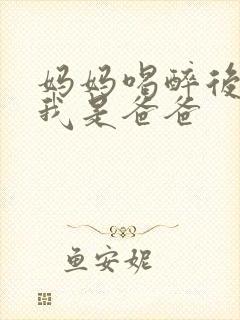 妈妈喝醉後
我是爸爸
鱼安妮